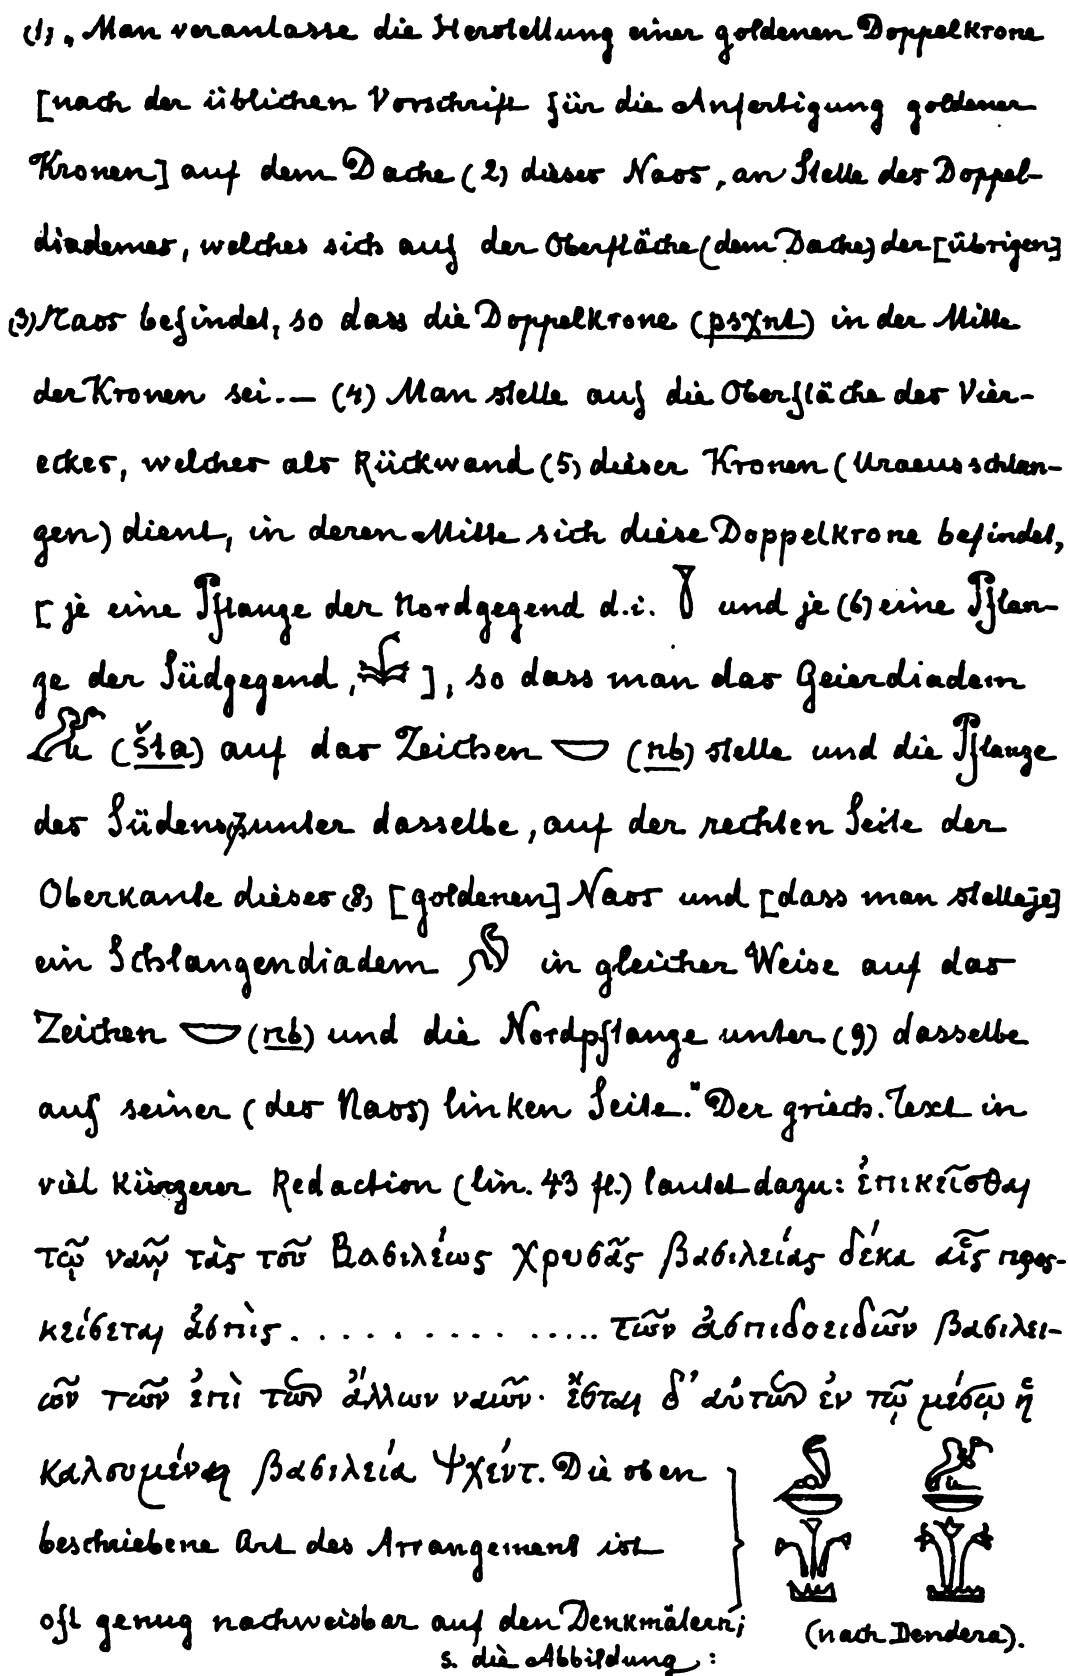 (1) „Man veranlasse die Herstellung einer goldenen Doppelkrone
[nach der üblichen Vorschrift für die Anfertigung goldener
Kronen] auf dem Dache (2) dieses Naos, an Stelle des Doppel-
diademes, welches sich auf der Oberfläche (dem Dache) der [übrigen]
(3) Naos befindet, so dass die Doppelkrone (psχnt) in der Mitte
der Kronen sei. — (4) Man stelle auf die Oberfläche des Vier-
eckes, welches als Rückwand (5) dieser Kronen (Uraeusschlan-
gen) dient, in deren Mitte sich diese Doppelkrone befindet,
[je eine Pflanze der Nordgegend d.i. und je (6) eine Pflan-
ze der Südgegend, ], so dass man das Geierdiadem
(šta) auf das Zeichen (nb) stelle und die Pflanze
des Südens (7) unter dasselbe, auf der rechten Seite der
Oberkante dieses (8) [goldenen] Naos und [dass man stelle je]
ein Schlangendiadem in gleicher Weise auf das
Zeichen (nb) und die Nordpflanze unter (9) dasselbe
auf seiner (des Naos) linken Seite." Der griech. Text in
viel kürzerer Redaction (lin. 43 fl.) lautet dazu: ἐπικεῖσθαι
τῷ ναῷ τὰς τοῦ Βασιλέως χρυσᾶς βασιλείας δέκα αἷς προς-
κείσεται ἀσπὶς . . . . . . . . . . . . . . τῶν ἀσπιδοειδῶν βασιλει-
ῶν τῶν ἐπὶ τῶν ἄλλων ναῶν· ἔσται δ' αὐτῶν ἐν τῷ μέσῳ ἡ
καλουμένη βασιλεία Ψχέντ. Die oben
beschriebene Art des Arrangement ist
oft genug nachweisbar auf den Denkmälern;
s. die Abbildung:
(nach Dendera).